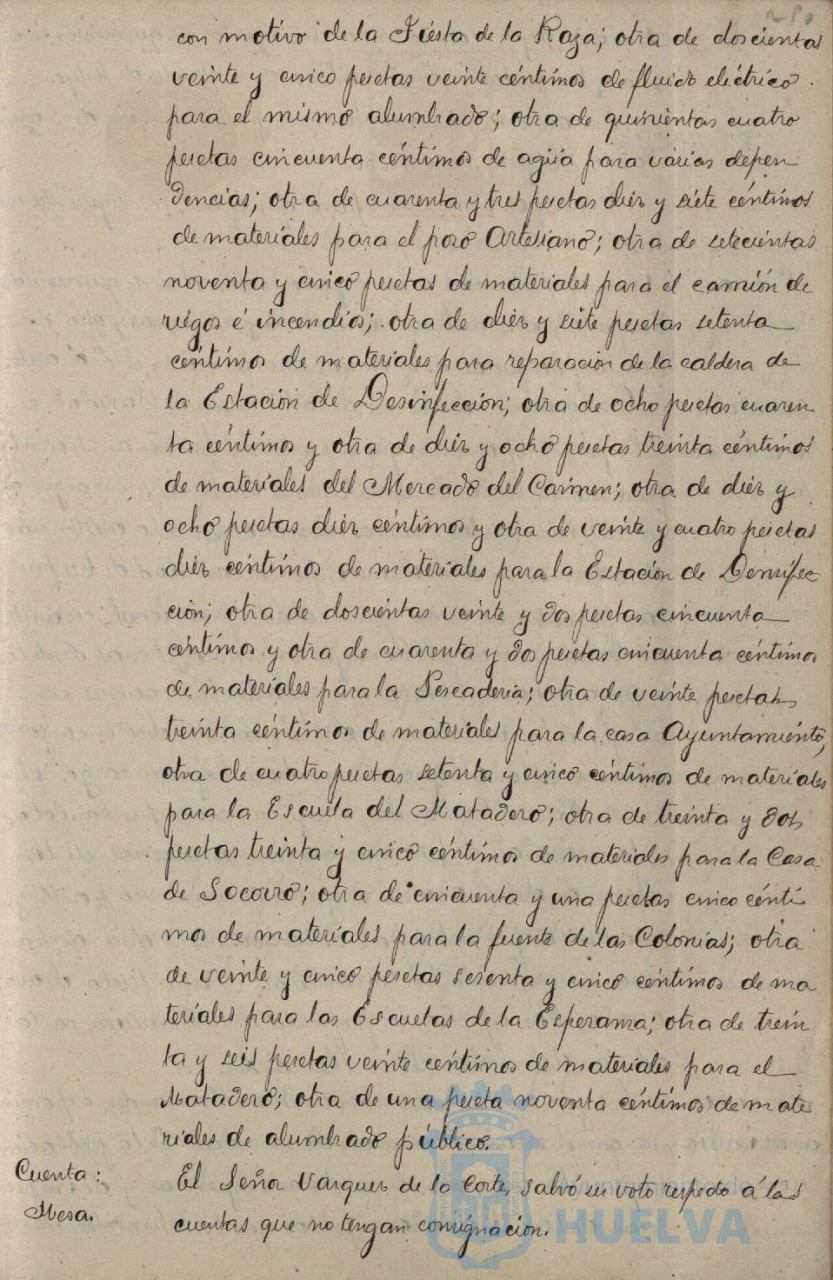 con motivo de la Fiesta de la Raza; otra de doscientas
veinte y cinco pesetas veinte céntimos de fluido eléctrico
para el mismo alumbrado; otra de quinientas cuatro
pesetas cincuenta céntimos de agua para varias depen
dencias; otra de cuarenta y tres pesetas diez y siete céntimos
de materiales para el pozo Artesiano; otra de setecientas
noventa y cinco pesetas de materiales para el camión de
riegos é incendios; otra de diez y siete pesetas setenta
céntimos de materiales para reparación de la caldera de
la Estación de Desinfección; otra de ocho pesetas cuaren
ta céntimos y otra de diez y ocho pesetas treinta céntimos
de materiales del Mercado del Carmen; otra de diez y
ocho pesetas diez céntimos y otra de veinte y cuatro pesetas
diez céntimos de materiales para la Estación de Densifec-
ción; otra de doscientas veinte y dos pesetas cincuenta
céntimos y otra de cuarenta y dos pesetas cincuenta céntimos
de materiales para la Pescadería; otra de veinte pesetas
treinta céntimos de materiales para la casa Ayuntamiento,
otra de cuatro pesetas setenta y cinco céntimos de materiales
para la Escuela del Matadero; otra de treinta y dos
pesetas treinta y cinco céntimos de materiales para la Casa
de Socorro; otra de cincuenta y una pesetas cinco cénti
mos de materiales para la fuente de las Colonias; otra
de veinte y cinco pesetas sesenta y cinco céntimos de ma
teriales para las Escuelas de la Esperanza; otra de trein
ta y seis pesetas veinte céntimos de materiales para el
Matadero; otra de una peseta noventa céntimos de mate
riales de alumbrado público.
Cuenta:
Mesa.
El Señor Vazquez de la Corte, salvó su voto respecto á las
cuentas que no tengan consignación.
HUELVA